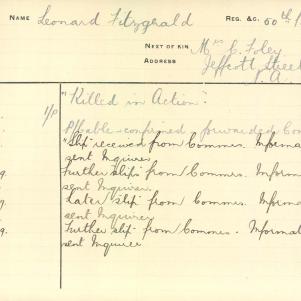 NAME Leonard Fitzgerald REG. &C. 50th
NEXT OF KIN Mrs C. Foley
ADDRESS Jeffcott Street
S.A.
1/P "Killed in Action".
confirmed forwarded Com
"Slip" received from Commrs. Informa
sent Inquirer.
Further slip from Commrs. Inform
sent Inquirer.
Later slip from Commrs. Informa
sent Inquirer
Further slip from Commrs. Informat
sent Inquirer